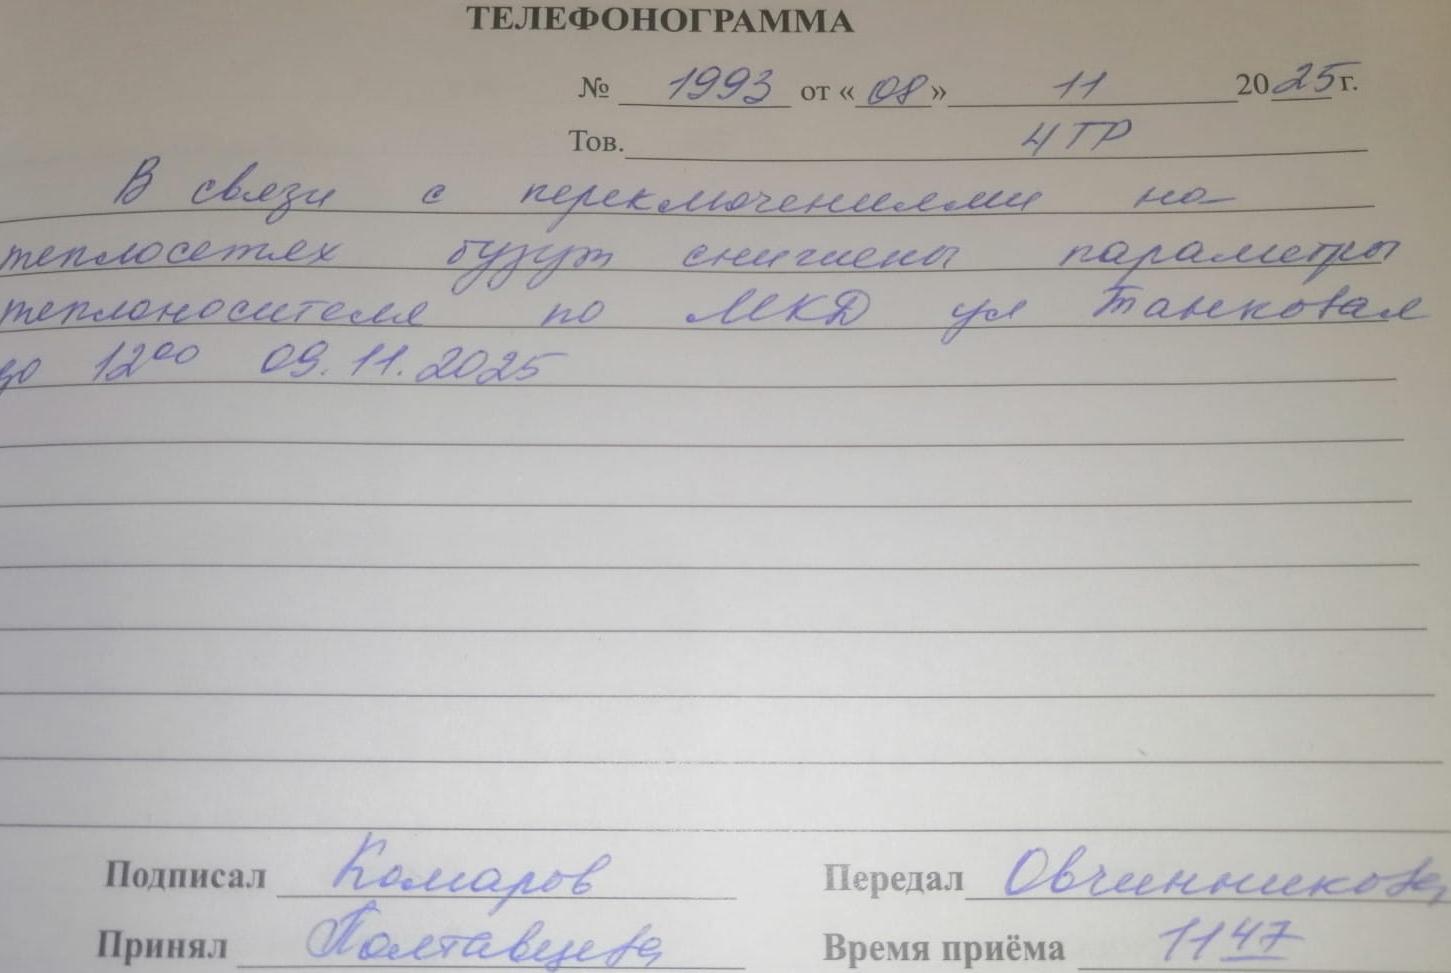 ТЕЛЕФОНОГРАММА
№ 1993 от «08» 11 2025г.
Тов. ЧТР
В связи с переключениями на
теплосетях будут снижены параметры
теплоносителя по МКД ул Танковая
до 12⁰⁰ 09.11.2025
Подписал Комаров Передал Овчинникова
Принял Полтавцева Время приёма 11⁴⁷